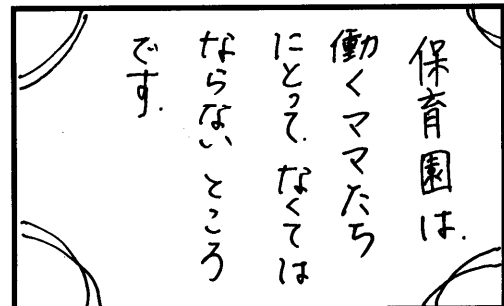 保育園は.
働くママたち
にとって.なくては
ならないところ
です.